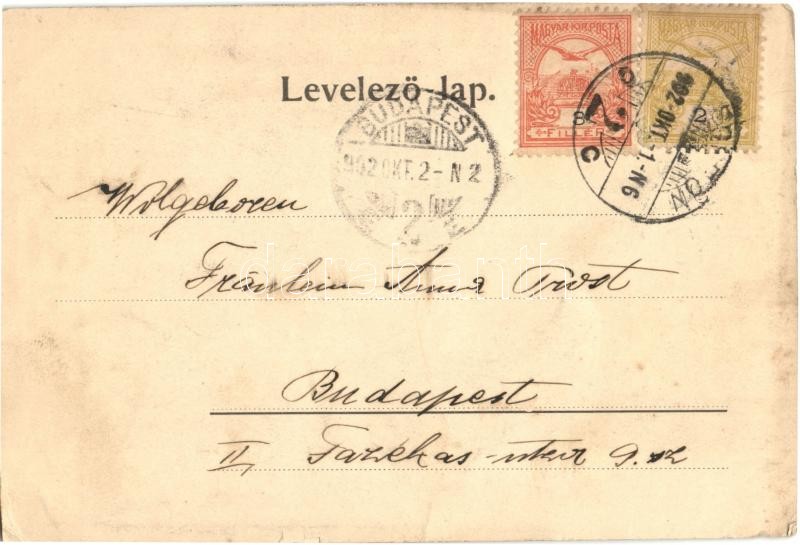 MAGYAR KIR. POSTA MAGYAR KIR. POSTA
Levelező-lap.
8 FILLÉR 2
BUDAPEST
902 OKT. 2 - N 2
902 OKT. 1 - N 6
Wolgeboren
Fräulein Anna Prost
Budapest
II, Fazekas-utca 9. sz
darabanth